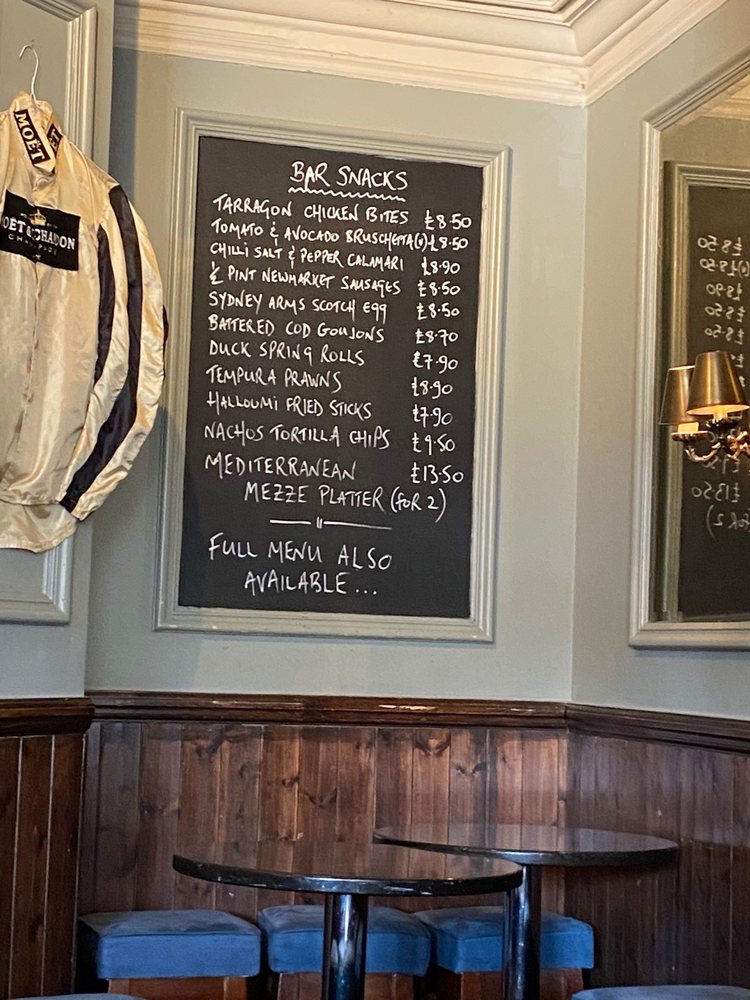 MOËT
MOËT & CHANDON
CHAMPAGNE
BAR SNACKS
TARRAGON CHICKEN BITES £8.50
TOMATO & AVOCADO BRUSCHETTA (V) £8.50
CHILLI SALT & PEPPER CALAMARI £8.90
½ PINT NEWMARKET SAUSAGES £8.50
SYDNEY ARMS SCOTCH EGG £8.50
BATTERED COD GOUJONS £8.70
DUCK SPRING ROLLS £7.90
TEMPURA PRAWNS £8.90
HALLOUMI FRIED STICKS £7.90
NACHOS TORTILLA CHIPS £9.50
MEDITERRANEAN £13.50
MEZZE PLATTER (FOR 2)
FULL MENU ALSO
AVAILABLE...